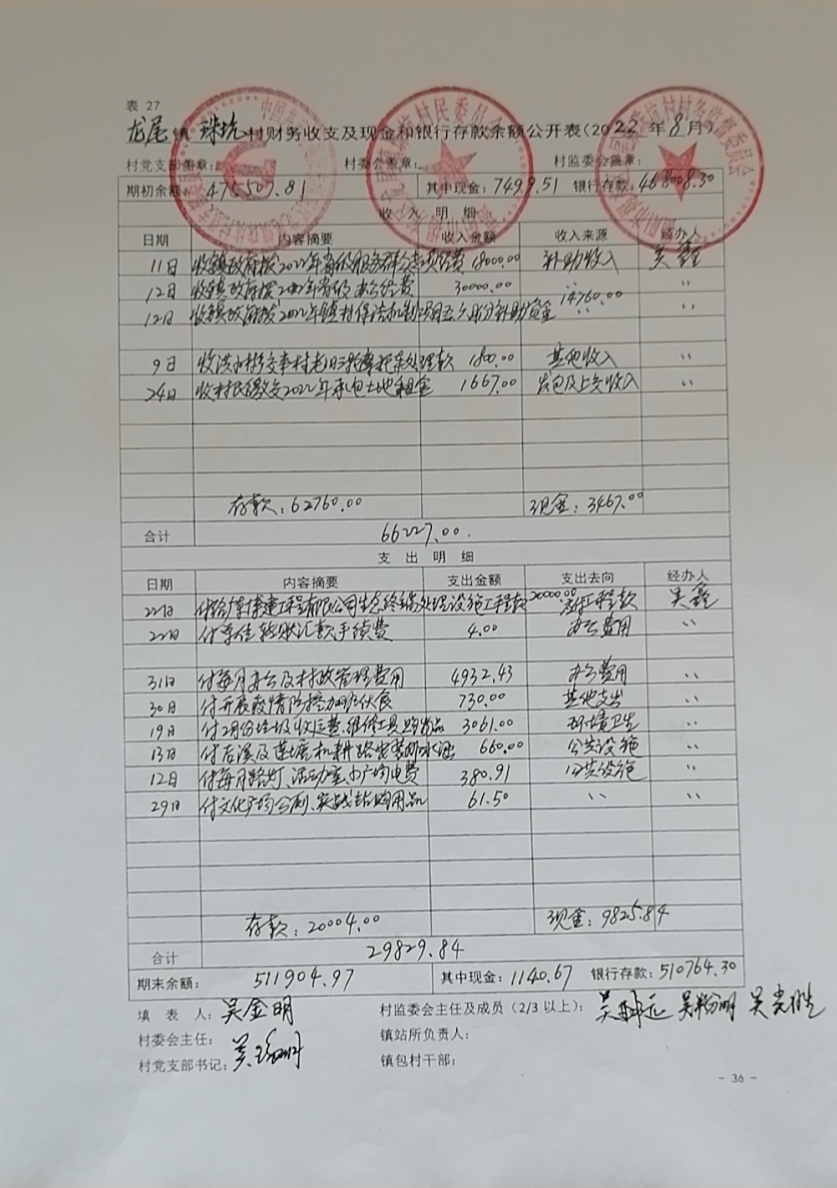 表 27
龙尾镇 珠坑村财务收支及现金和银行存款余额公开表(2022年8月)
村党支部盖章: 村委会盖章: 村监委会盖章:
期初余额: 475507.81 其中现金: 7499.51 银行存款: 468008.30
收 入 明 细
日期 内容摘要 收入金额 收入来源 经办人
11日 收镇政府拨2022年省级服务群众专项经费 18000.00 补助收入 吴鑫
12日 收镇政府拨2022年省级办公经费 30000.00 〃 〃
12日 收镇政府拨2022年镇村保洁机制项目五六月份补助资金 14760.00 〃 〃
9日 收 交本村老旧 处理款 1800.00 其他收入 〃
24日 收村民缴交2022年承包土地租金 1667.00 发包及上交收入 〃
存款: 62760.00 现金: 3467.00
合计 66227.00.
支 出 明 细
日期 内容摘要 支出金额 支出去向 经办人
22日 付 建工程有限公司生态终端处理设施工程款 20000.00 工程款 吴鑫
22日 付 转账汇款手续费 4.00 办公费用 〃
31日 付每月办公及村政管理费用 4932.43 办公费用 〃
30日 付开展疫情防控加班伙食 730.00 其他支出 〃
19日 付2月份垃圾收运费、维修工具购 品 3061.00 环境卫生 〃
13日 付后溪及莲塘机耕路安装 660.00 公共设施 〃
12日 付每月路灯、活动室、广场电费 380.91 公共设施 〃
29日 付文化广场公厕、实践站购用品 61.50 〃 〃
存款: 20004.00 现金: 9825.84
合计 29829.84
期末余额: 511904.97 其中现金: 1140.67 银行存款: 510764.30
填 表 人: 吴金明 村监委会主任及成员(2/3 以上):
村委会主任: 镇站所负责人:
村党支部书记: 镇包村干部:
- 36 -